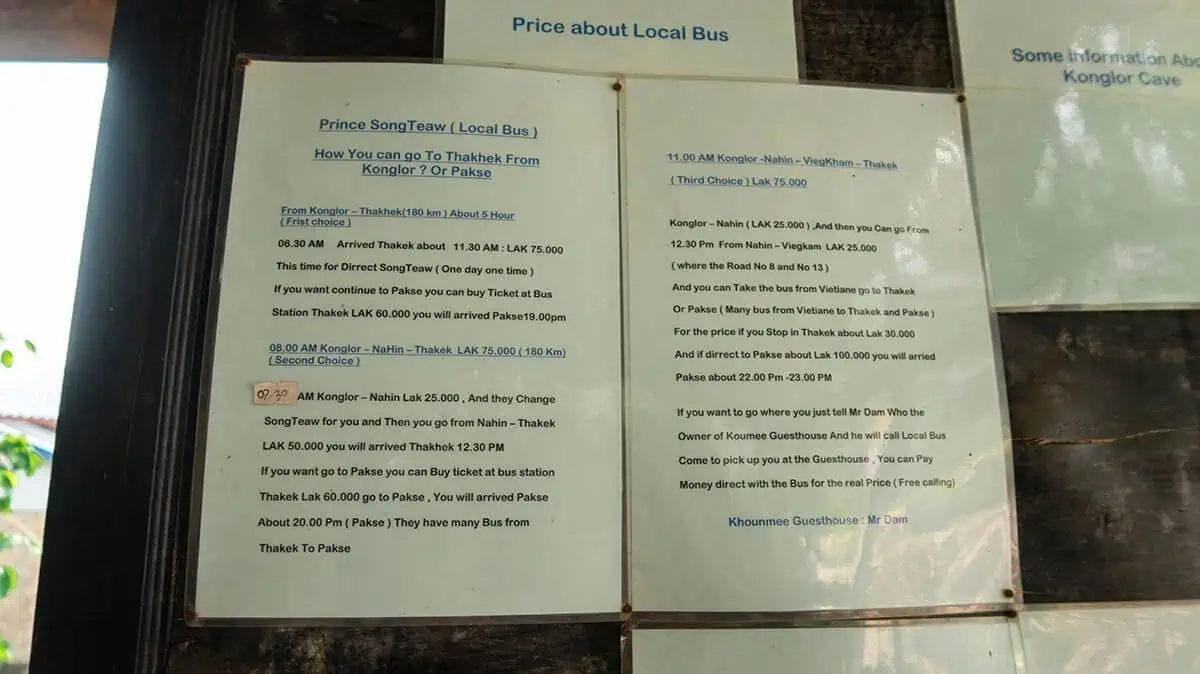 Price about Local Bus
Some information Abo
Konglor Cave
Prince SongTeaw ( Local Bus )
How You can go To Thakhek From
Konglor ? Or Pakse
From Konglor – Thakhek(180 km ) About 5 Hour
( Frist choice )
06.30 AM Arrived Thakek about 11.30 AM : LAK 75.000
This time for Dirrect SongTeaw ( One day one time )
If you want continue to Pakse you can buy Ticket at Bus
Station Thakek LAK 60.000 you will arrived Pakse19.00pm
08.00 AM Konglor – NaHin – Thakek LAK 75.000 ( 180 Km)
( Second Choice )
07.30 AM Konglor – Nahin Lak 25.000 , And they Change
SongTeaw for you and Then you go from Nahin – Thakek
LAK 50.000 you will arrived Thakhek 12.30 PM
If you want go to Pakse you can Buy ticket at bus station
Thakek Lak 60.000 go to Pakse , You will arrived Pakse
About 20.00 Pm ( Pakse ) They have many Bus from
Thakek To Pakse
11.00 AM Konglor -Nahin – ViegKham – Thakek
( Third Choice ) Lak 75.000
Konglor – Nahin ( LAK 25.000 ) ,And then you Can go From
12.30 Pm From Nahin – Viegkam LAK 25.000
( where the Road No 8 and No 13 )
And you can Take the bus from Vietiane go to Thakek
Or Pakse ( Many bus from Vietiane to Thakek and Pakse )
For the price if you Stop in Thakek about Lak 30.000
And if dirrect to Pakse about Lak 100.000 you will arried
Pakse about 22.00 Pm -23.00 PM
If you want to go where you just tell Mr Dam Who the
Owner of Koumee Guesthouse And he will call Local Bus
Come to pick up you at the Guesthouse , You can Pay
Money direct with the Bus for the real Price ( Free calling)
Khounmee Guesthouse : Mr Dam